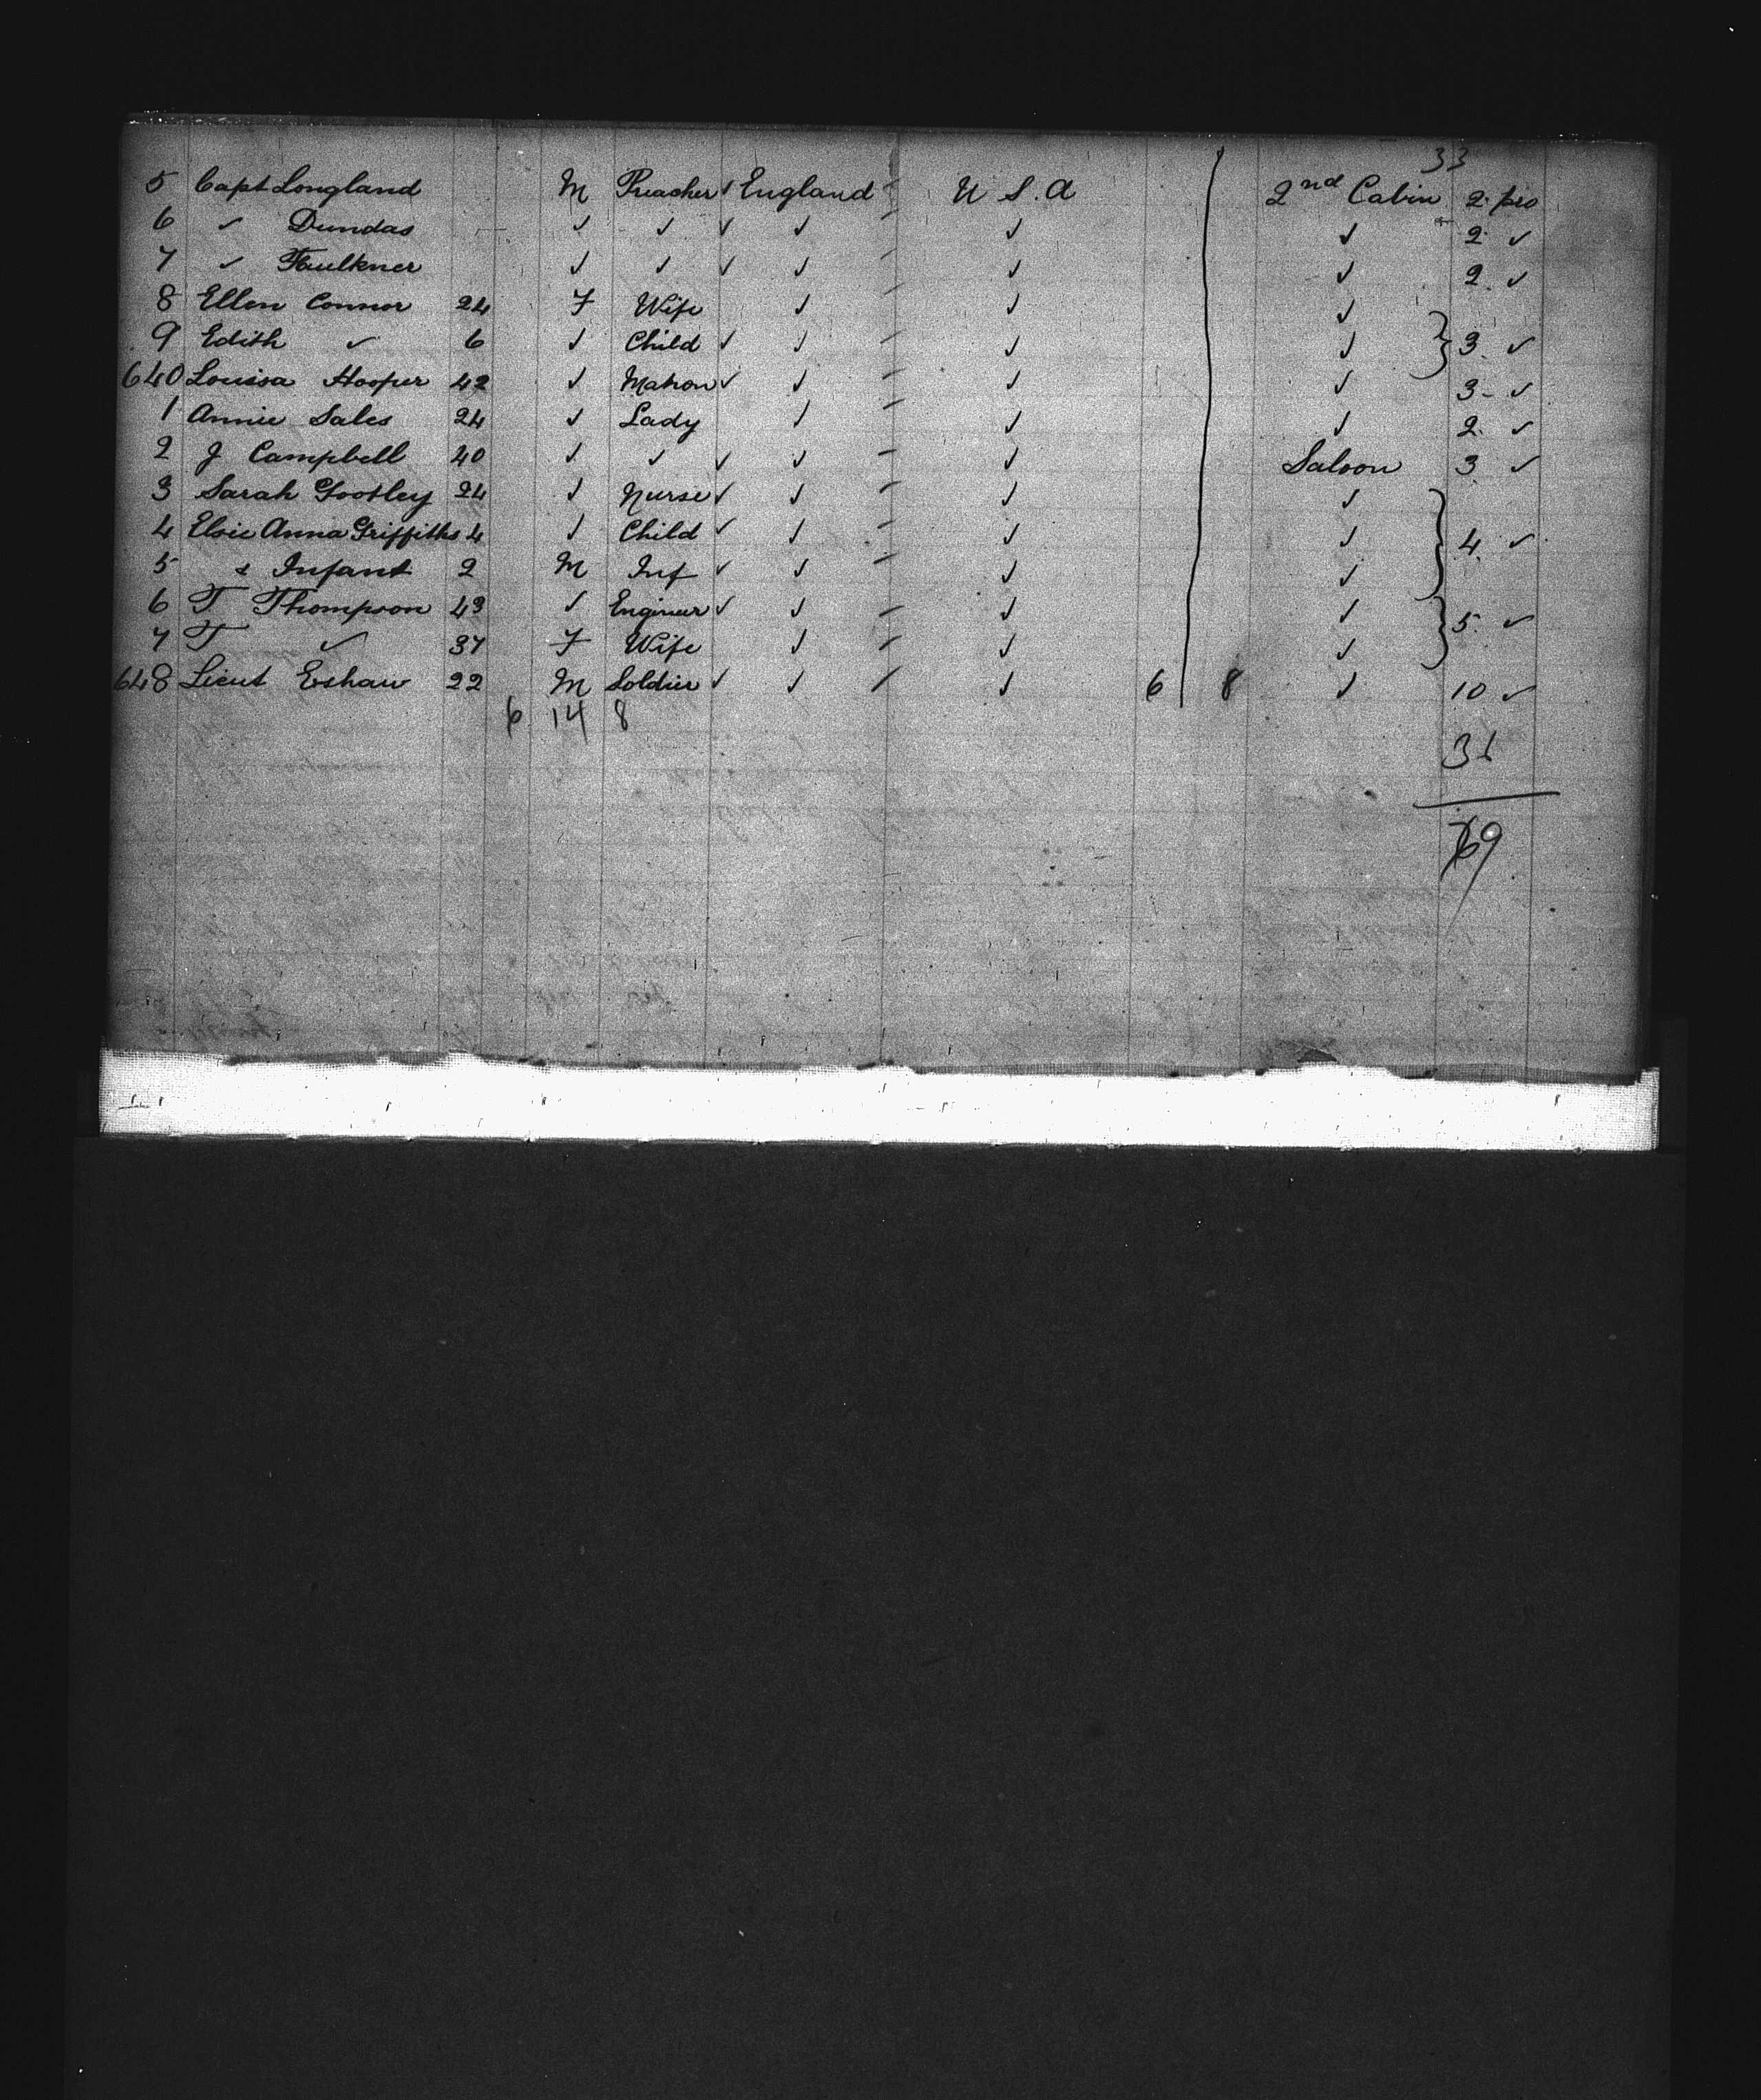 33
5 Capt Longland M Preacher ✓ England U S. A 2nd Cabin 2. pro
6 ✓ Dundas ✓ ✓ ✓ ✓ ✓ ✓ 2. ✓
7 ✓ Faulkner ✓ ✓ ✓ ✓ ✓ ✓ 2. ✓
8 Ellen Connor 24 F Wife ✓ ✓ ✓
9 Edith ✓ 6 ✓ Child ✓ ✓ ✓ ✓ 3. ✓
640 Louisa Hooper 42 ✓ Matron ✓ ✓ ✓ ✓ 3 - ✓
1 Annie Sales 24 ✓ Lady ✓ ✓ ✓ 2. ✓
2 J Campbell 40 ✓ ✓ ✓ ✓ ✓ Saloon 3 ✓
3 Sarah 24 ✓ Nurse ✓ ✓ ✓ ✓
4 Elsie Anna Griffiths 4 ✓ Child ✓ ✓ ✓ ✓ 4. ✓
5 & Infant 2 M Inf ✓ ✓ ✓ ✓
6 T Thompson 43 ✓ Engineer ✓ ✓ ✓ ✓ 5. ✓
7 T ✓ 37 F Wife ✓ ✓ ✓
648 Lieut Eshaw 22 M Soldier ✓ ✓ ✓ 6 8 ✓ 10 ✓
6 14 8